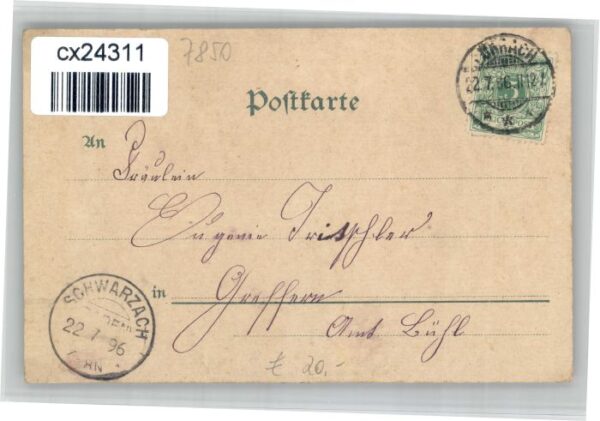 cx24311
7850
LÖRRACH
22.7.96.11-12V.
Postkarte
An
Fräulein
Eugenie Tritschler
in Greffern
Amt Bühl
SCHWARZACH
22 7 96
€ 20,-